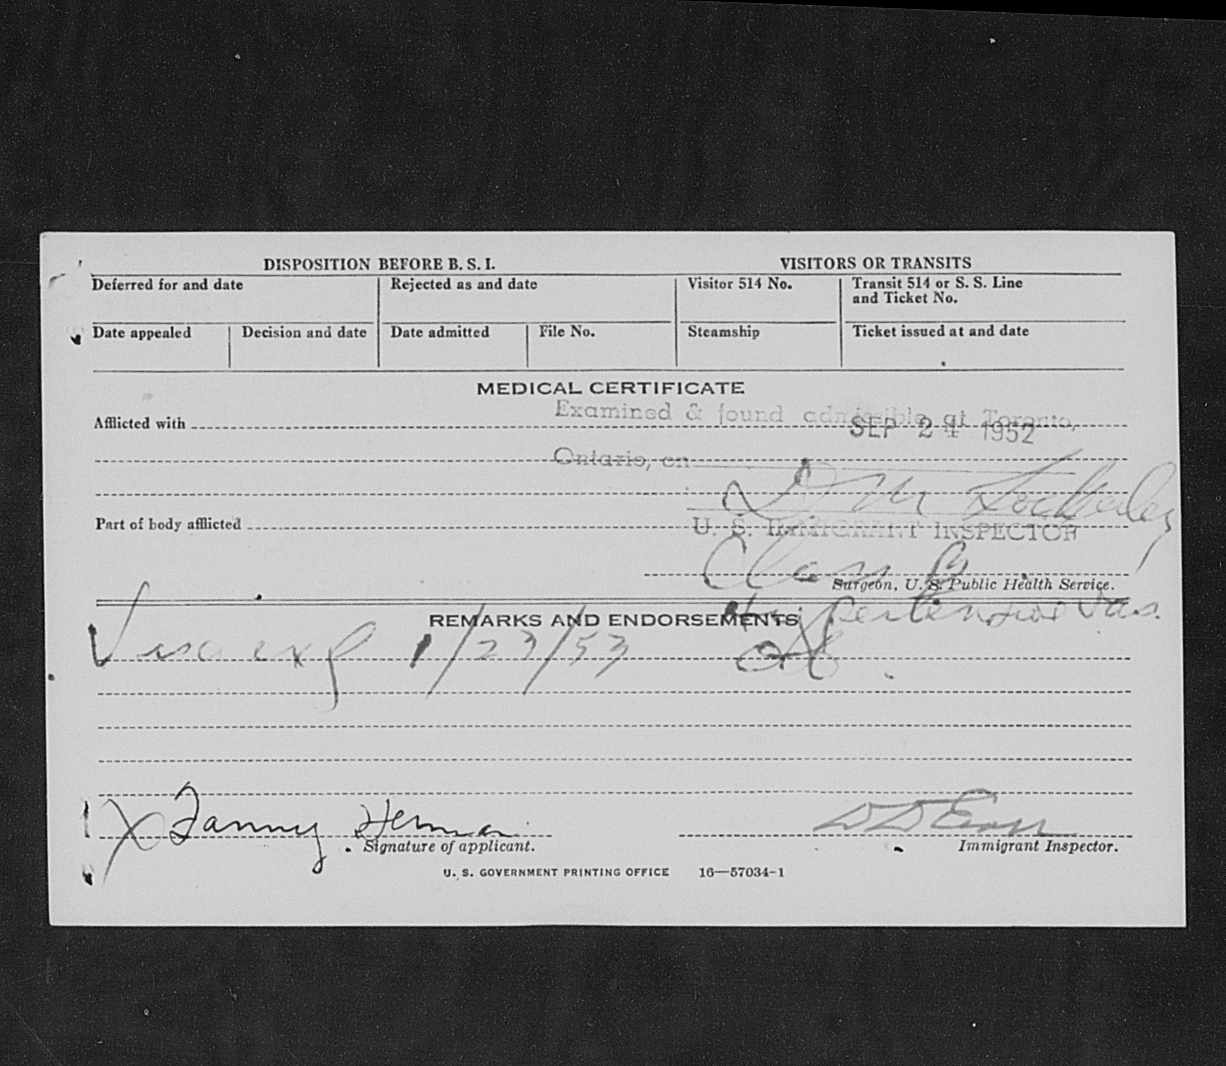 DISPOSITION BEFORE B. S. I. VISITORS OR TRANSITS
Deferred for and date Rejected as and date Visitor 514 No. Transit 514 or S. S. Line
and Ticket No.
Date appealed Decision and date Date admitted File No. Steamship Ticket issued at and date
MEDICAL CERTIFICATE
Examined & found admissible at Toronto,
Afflicted with SEP 24 1952
Ontario, on
D M
Part of body afflicted U. S. IMMIGRANT INSPECTOR
Class B
Surgeon, U. S. Public Health Service.
Hypertensive Vas.
REMARKS AND ENDORSEMENTS
Visa exp 1/23/53
X Fanny Herman D D
Signature of applicant. Immigrant Inspector.
U. S. GOVERNMENT PRINTING OFFICE 16—57034-1